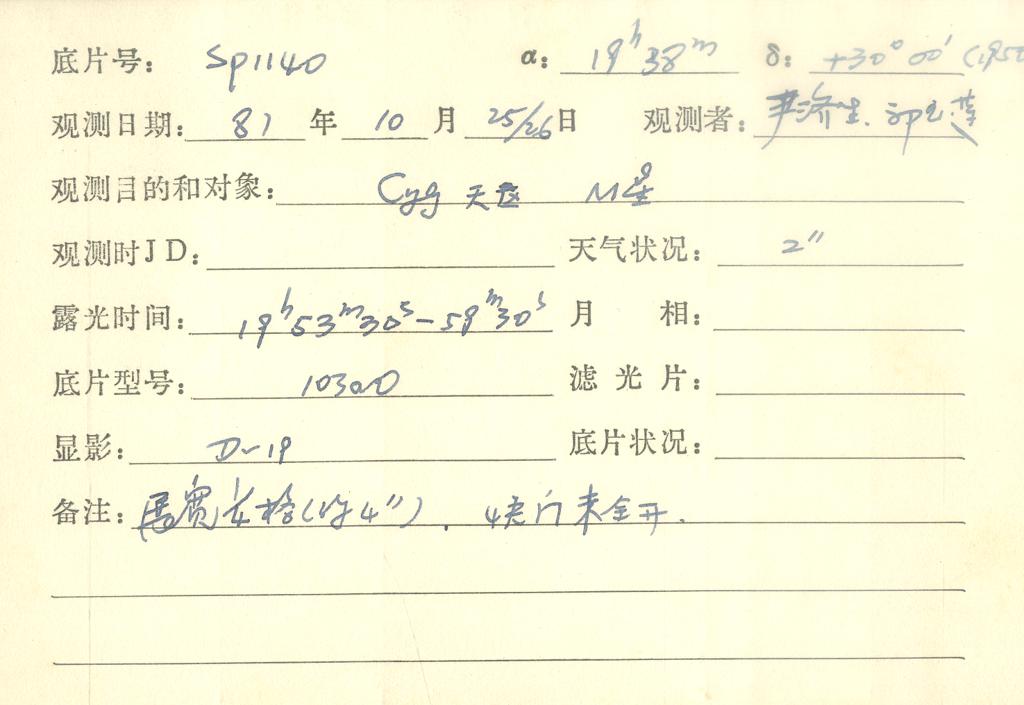 底片号: Sp1140 α: 19ʰ38ᵐ δ: +30°00′ (1950
观测日期: 81 年 10 月 25/26 日 观测者: 尹济生.
观测目的和对象: Cyg 天区 M星
观测时JD: 天气状况: 2″
露光时间: 19ʰ53ᵐ30ˢ—59ᵐ30ˢ 月 相:
底片型号: 103aO 滤光片:
显影: D-19 底片状况:
备注: 展宽 4″). 快门未全开.